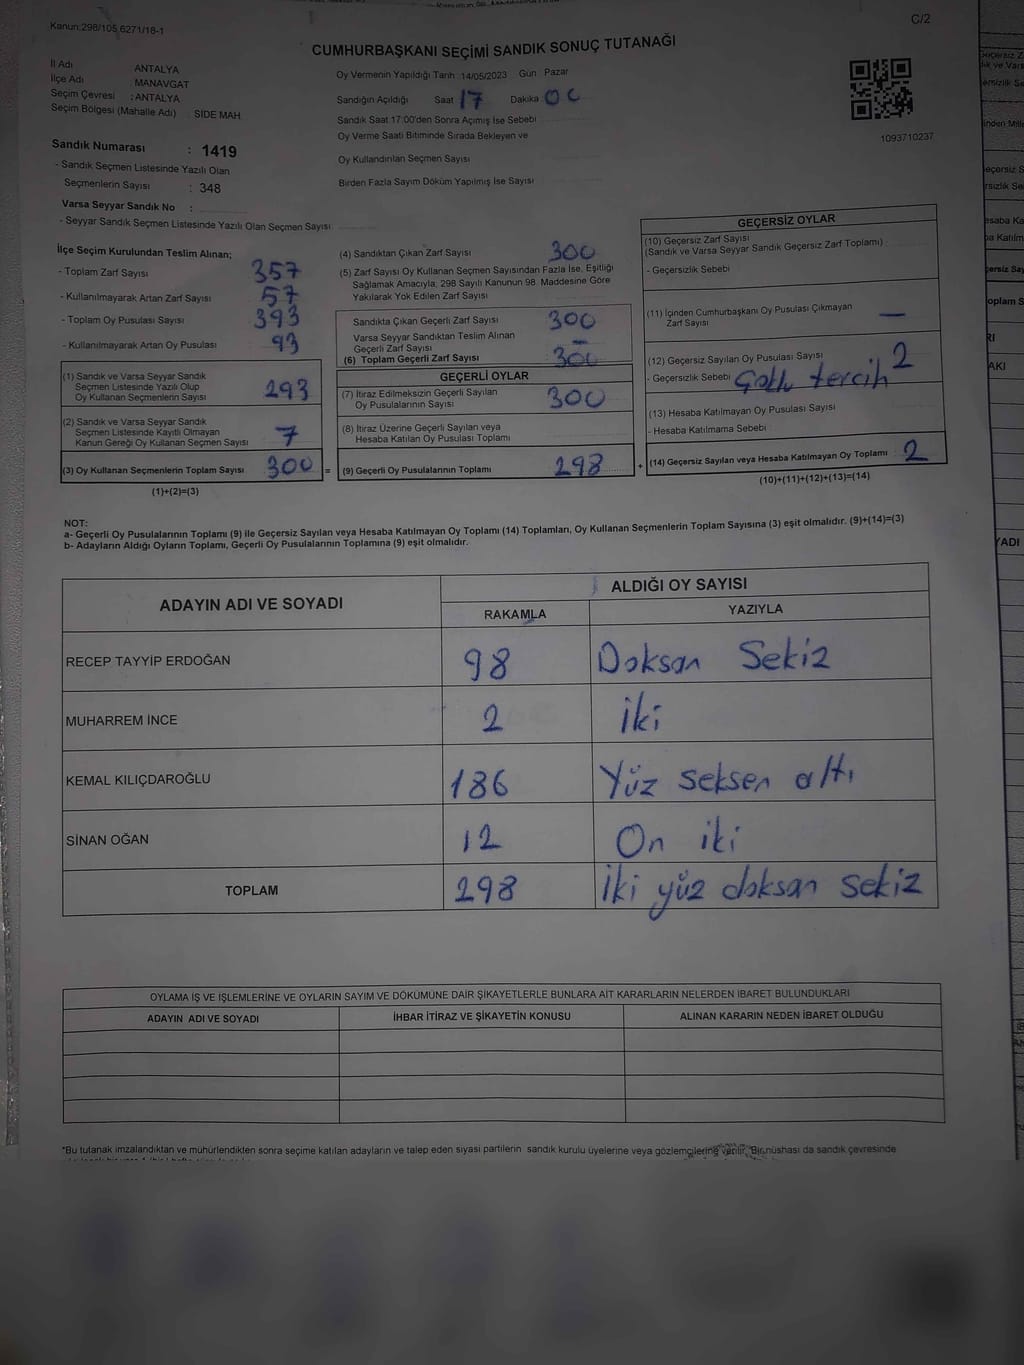 Kanun:298/105,6271/18-1
C/2
CUMHURBAŞKANI SEÇİMİ SANDIK SONUÇ TUTANAĞI
İl Adı ANTALYA
İlçe Adı MANAVGAT
Seçim Çevresi : ANTALYA
Seçim Bölgesi (Mahalle Adı) SIDE MAH
Sandık Numarası : 1419
- Sandık Seçmen Listesinde Yazılı Olan
Seçmenlerin Sayısı : 348
Varsa Seyyar Sandık No :
- Seyyar Sandık Seçmen Listesinde Yazılı Olan Seçmen Sayısı
Oy Vermenin Yapıldığı Tarih :14/05/2023 Gün Pazar
Sandığın Açıldığı Saat 17 Dakika 00
Sandık Saat 17:00'den Sonra Açımış İse Sebebi
Oy Verme Saati Bitiminde Sırada Bekleyen ve
Oy Kullandırılan Seçmen Sayısı
Birden Fazla Sayım Döküm Yapılmış İse Sayısı
1093710237
İlçe Seçim Kurulundan Teslim Alınan;
- Toplam Zarf Sayısı 357
- Kullanılmayarak Artan Zarf Sayısı 57
- Toplam Oy Pusulası Sayısı 393
- Kullanılmayarak Artan Oy Pusulası 93
(1) Sandık ve Varsa Seyyar Sandık
Seçmen Listesinde Yazılı Olup
Oy Kullanan Seçmenlerin Sayısı 293
(2) Sandık ve Varsa Seyyar Sandık
Seçmen Listesinde Kayıtlı Olmayan
Kanun Gereği Oy Kullanan Seçmen Sayısı 7
(3) Oy Kullanan Seçmenlerin Toplam Sayısı 300 =
(1)+(2)=(3)
(4) Sandıktan Çıkan Zarf Sayısı 300
(5) Zarf Sayısı Oy Kullanan Seçmen Sayısından Fazla İse, Eşitliği
Sağlamak Amacıyla; 298 Sayılı Kanunun 98. Maddesine Göre
Yakılarak Yok Edilen Zarf Sayısı –
Sandıkta Çıkan Geçerli Zarf Sayısı 300
Varsa Seyyar Sandıktan Teslim Alınan
Geçerli Zarf Sayısı –
(6) Toplam Geçerli Zarf Sayısı 300
GEÇERLİ OYLAR
(7) İtiraz Edilmeksizin Geçerli Sayılan
Oy Pusulalarının Sayısı 300
(8) İtiraz Üzerine Geçerli Sayılan veya
Hesaba Katılan Oy Pusulası Toplamı
(9) Geçerli Oy Pusulalarının Toplamı 298 +
GEÇERSİZ OYLAR
(10) Geçersiz Zarf Sayısı
(Sandık ve Varsa Seyyar Sandık Geçersiz Zarf Toplamı)
- Geçersizlik Sebebi
(11) İçinden Cumhurbaşkanı Oy Pusulası Çıkmayan
Zarf Sayısı —
(12) Geçersiz Sayılan Oy Pusulası Sayısı 2
- Geçersizlik Sebebi tercih
(13) Hesaba Katılmayan Oy Pusulası Sayısı
- Hesaba Katılmama Sebebi
(14) Geçersiz Sayılan veya Hesaba Katılmayan Oy Toplamı 2
(10)+(11)+(12)+(13)=(14)
NOT:
a- Geçerli Oy Pusulalarının Toplamı (9) ile Geçersiz Sayılan veya Hesaba Katılmayan Oy Toplamı (14) Toplamları, Oy Kullanan Seçmenlerin Toplam Sayısına (3) eşit olmalıdır. (9)+(14)=(3)
b- Adayların Aldığı Oyların Toplamı, Geçerli Oy Pusulalarının Toplamına (9) eşit olmalıdır.
ADAYIN ADI VE SOYADI
ALDIĞI OY SAYISI
RAKAMLA YAZIYLA
RECEP TAYYİP ERDOĞAN 98 Doksan Sekiz
MUHARREM İNCE 2 İki
KEMAL KILIÇDAROĞLU 186 Yüz seksen altı
SİNAN OĞAN 12 On iki
TOPLAM 298 İki yüz doksan sekiz
OYLAMA İŞ VE İŞLEMLERİNE VE OYLARIN SAYIM VE DÖKÜMÜNE DAİR ŞİKAYETLERLE BUNLARA AİT KARARLARIN NELERDEN İBARET BULUNDUKLARI
ADAYIN ADI VE SOYADI İHBAR İTİRAZ VE ŞİKAYETİN KONUSU ALINAN KARARIN NEDEN İBARET OLDUĞU
*Bu tutanak imzalandıktan ve mühürlendikten sonra seçime katılan adayların ve talep eden siyasi partilerin sandık kurulu üyelerine veya gözlemcilerine verilir. Bir nüshası da sandık çevresinde